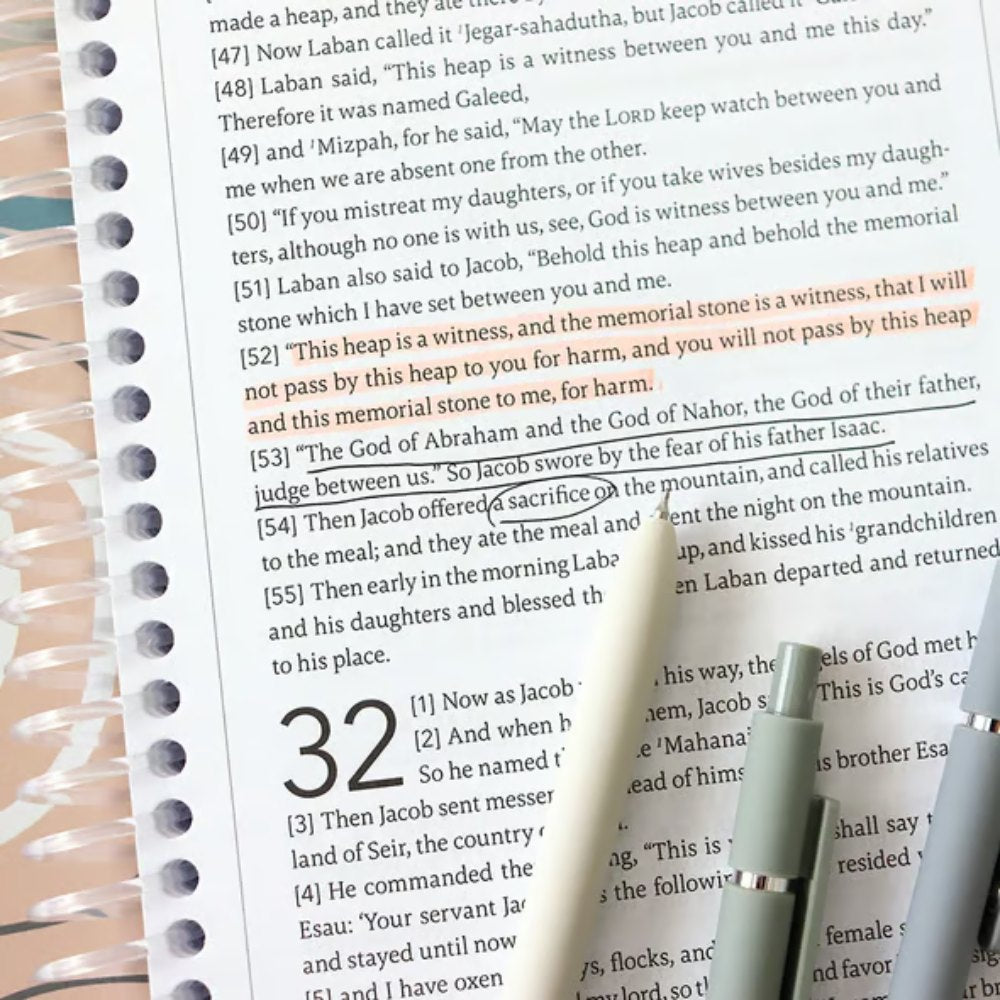 made a heap, and they ate there
[47] Now Laban called it ˈJegar-sahadutha, but Jacob called it
[48] Laban said, “This heap is a witness between you and me this day.”
Therefore it was named Galeed,
[49] and ˈMizpah, for he said, “May the LORD keep watch between you and
me when we are absent one from the other.
[50] “If you mistreat my daughters, or if you take wives besides my daugh-
ters, although no one is with us, see, God is witness between you and me.”
[51] Laban also said to Jacob, “Behold this heap and behold the memorial
stone which I have set between you and me.
[52] “This heap is a witness, and the memorial stone is a witness, that I will
not pass by this heap to you for harm, and you will not pass by this heap
and this memorial stone to me, for harm.
[53] “The God of Abraham and the God of Nahor, the God of their father,
judge between us.” So Jacob swore by the fear of his father Isaac.
[54] Then Jacob offered a sacrifice on the mountain, and called his relatives
to the meal; and they ate the meal and ent the night on the mountain.
[55] Then early in the morning Laba up, and kissed his ˈgrandchildren
and his daughters and blessed th en Laban departed and returned
to his place.
32
[1] Now as Jacob his way, the els of God met h
[2] And when h hem, Jacob s This is God’s ca
So he named t e ˈMahanai
[3] Then Jacob sent messer ead of hims is brother Esa
land of Seir, the country
[4] He commanded the ng, “This is shall say t
Esau: ‘Your servant Jac s the followin resided
and stayed until now
[5] and I have oxen ys, flocks, and female s
my lord, so t nd favor sig